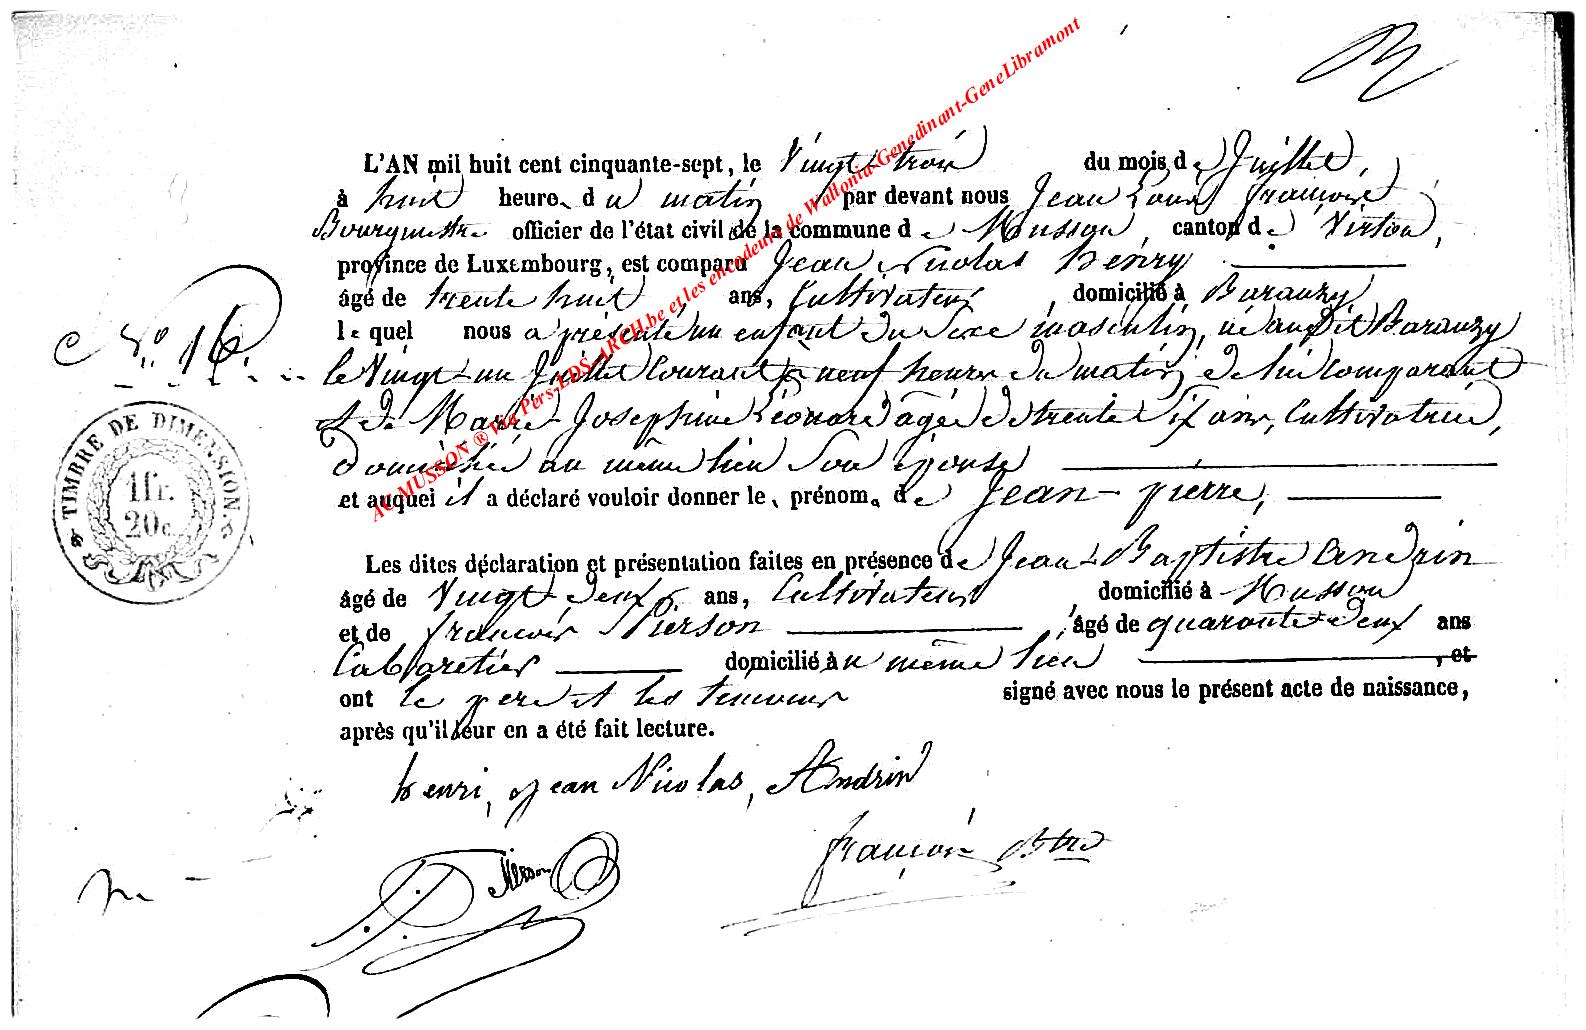 L'AN mil huit cent cinquante-sept, le Vingt-trois du mois de Juillet,
à huit heure, du matin par devant nous Jean Louis françois
Bourgmestre officier de l'état civil de la commune de Musson, canton de Virton,
province de Luxembourg, est comparu Jean Nicolas henry
âgé de trente huit ans, Cultivateur, domicilié à Baranzy
lequel nous a présenté un enfant du sexe masculin, né au dit Baranzy
le Vingt-un Juillet Courant à neuf heures du matin, de lui Comparant
et de Marie-Josephine Léonard âgée de trente six ans, Cultivatrice,
domiciliée au même lieu Son épouse
et auquel il a déclaré vouloir donner le, prénom, de Jean-pierre,
Les dites déclaration et présentation faites en présence de Jean-Baptistre andrin
âgé de Vingt-deux ans, Cultivateur domicilié à Musson
et de françois Pierson, âgé de quarante-deux ans
Cabaretier domicilié au même lieu, et
ont le pere et les temoins signé avec nous le présent acte de naissance,
après qu'il leur en a été fait lecture.
henri, jean Nicolas, Andrin
françois Btre
J. P. Pierson
N° 16.
TIMBRE DE DIMENSION.
1fr.
20c.
AC MUSSON ® Via Pers-EDS-ARCH.be et les encodeurs de Wallonia-Genedinant-GeneLibramont